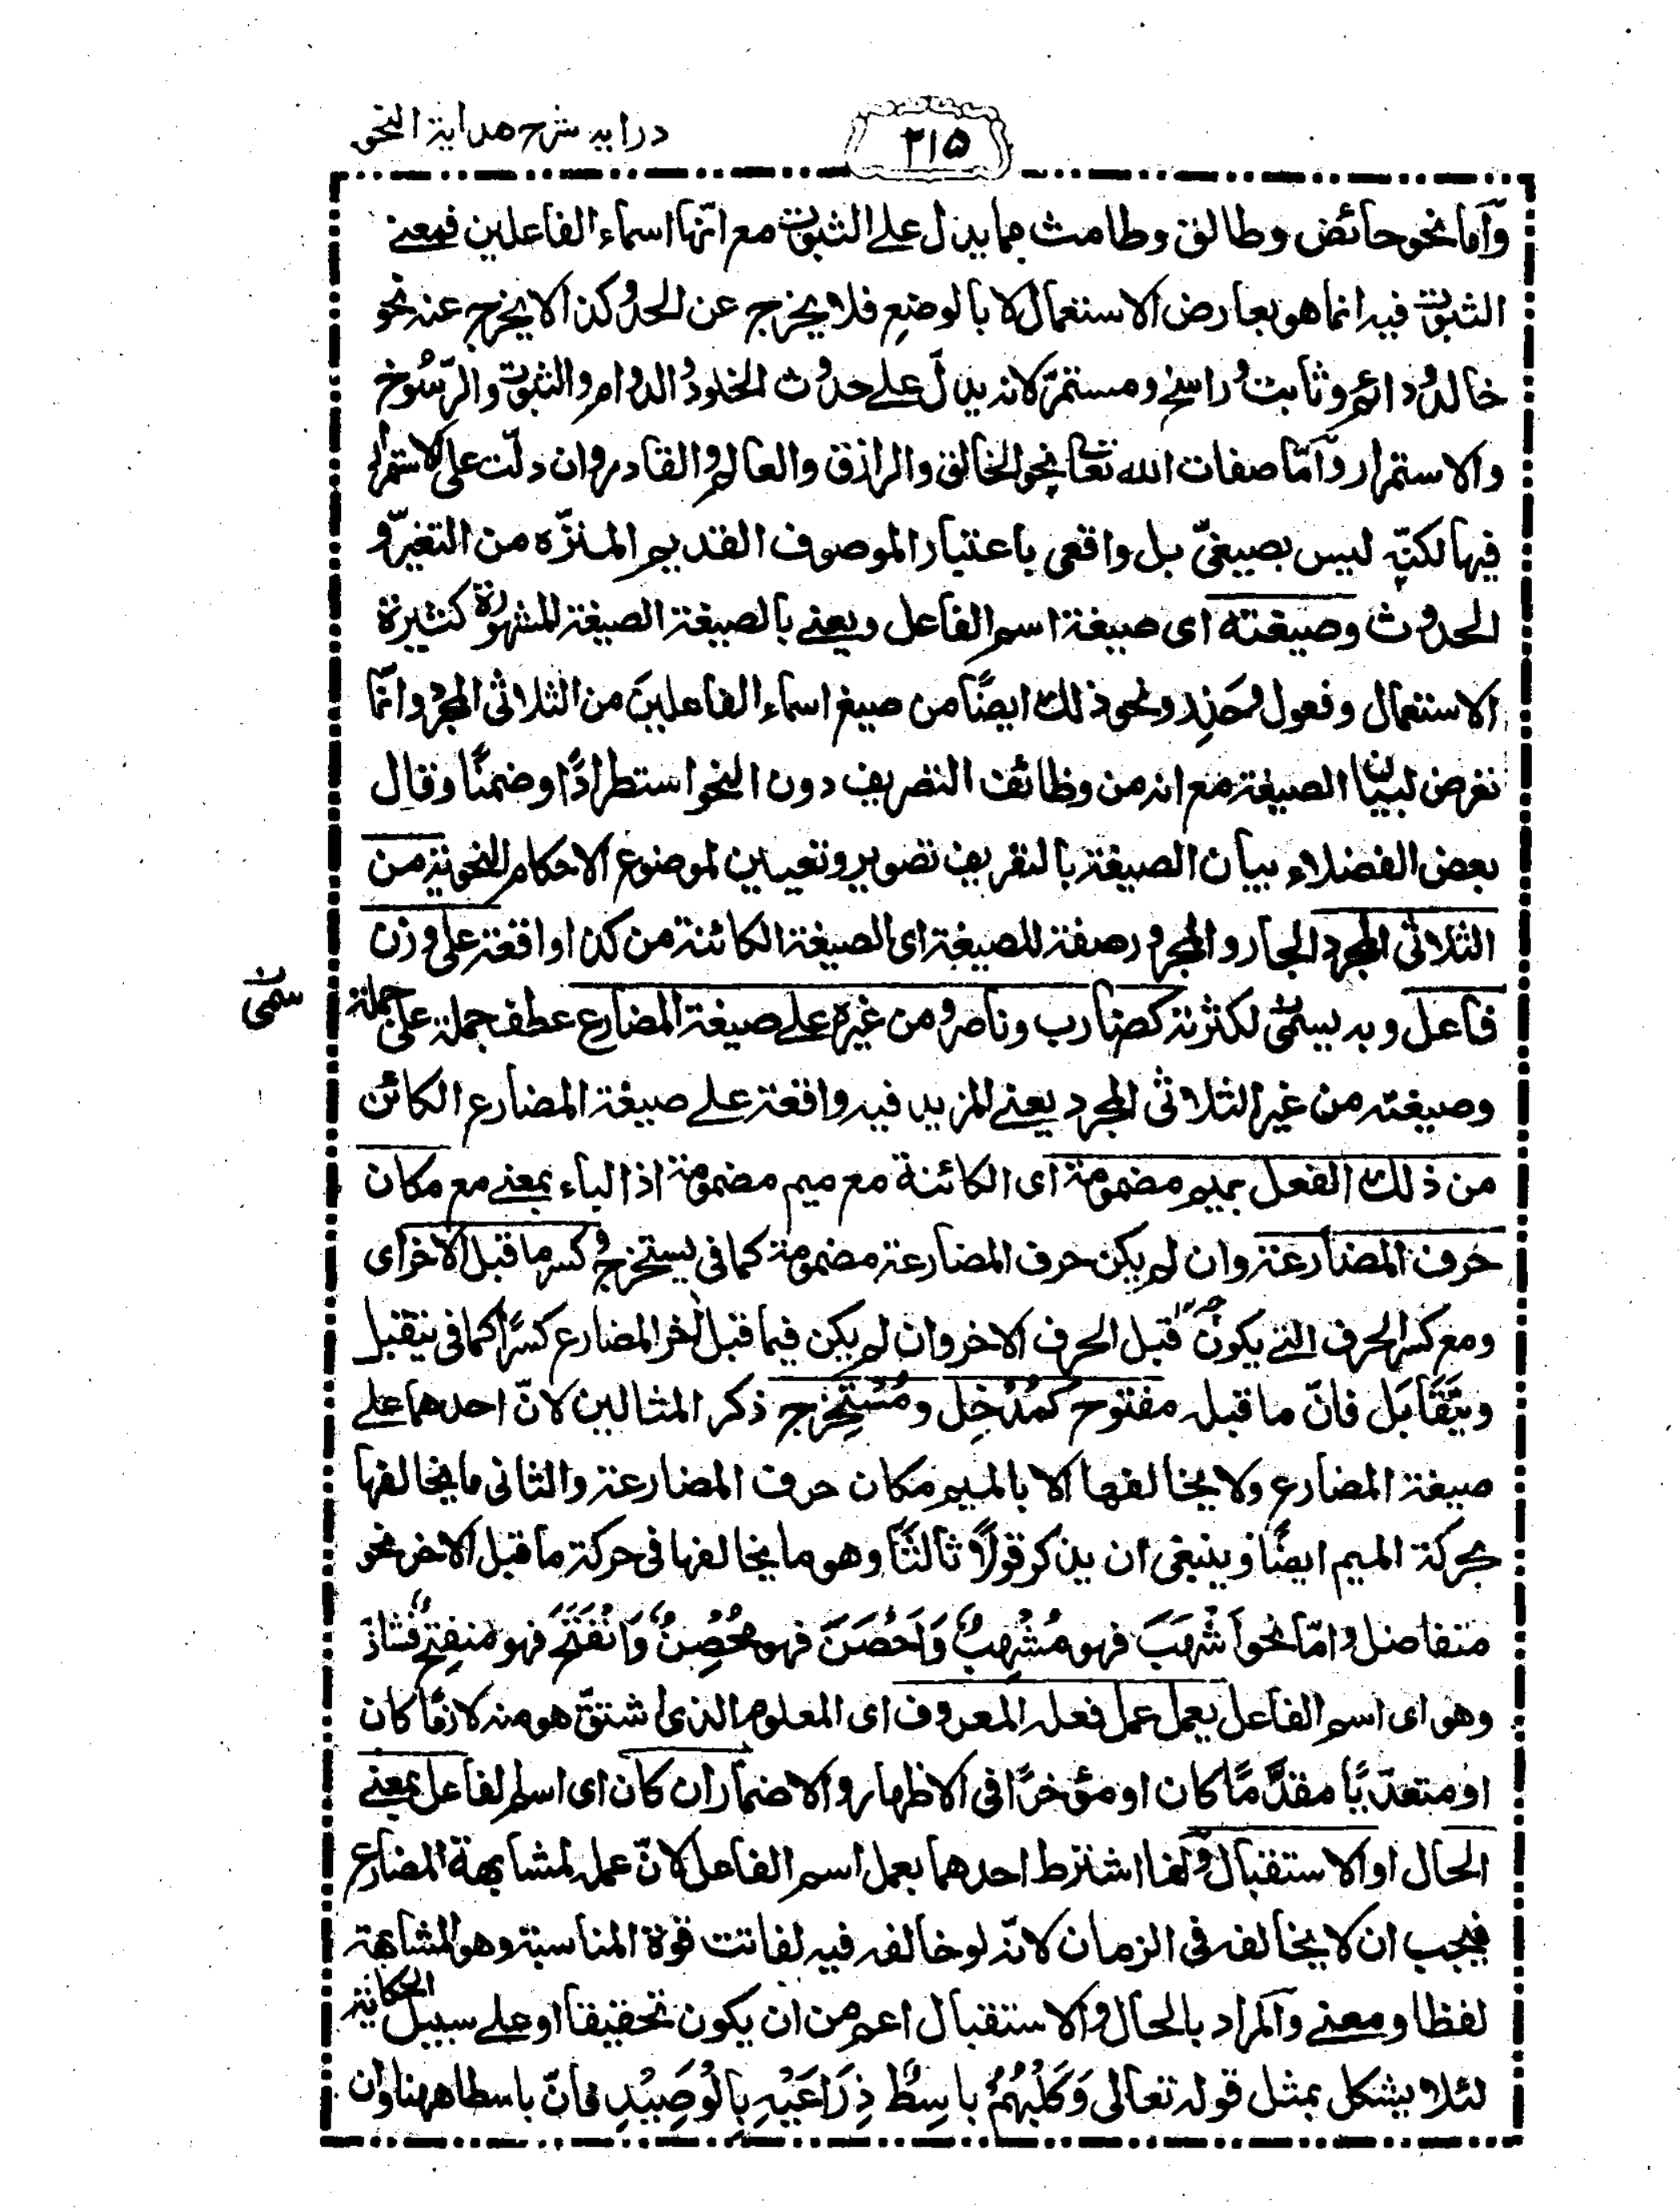 درایه شرح هدایة النحو
۲۱۵
وأما نحو حائض وطالق وطامث مما يدل على الثبوت مع انّها اسماء الفاعلين فمعنى
الثبوت فيه انما هو بعارض الاستعمال لا بالوضع فلا يخرج عن الحدّ وكذا لا يخرج عنه نحو
خالد ودائم وثابت وراسخ ومستمرّ لانه يدلّ على حدوث الخلود والدوام والثبوت والرّسُوخ
والاستمرار وأمّا صفات الله تعالى نحو الخالق والرازق والعالم والقادر وان دلّت على الاستمرار
فيها لكنّه ليس بصيغىّ بل واقعى باعتبار الموصوف القديم المنزّه من التغيّر و
الحدوث وصيغته اى صيغة اسم الفاعل ويعنى بالصيغة الصيغة المشهورة كثيرة
الاستعمال وفعول وحَذِر ونحو ذلك ايضًا من صيغ اسماء الفاعلين من الثلاثى المجرد وانّما
تعرض لبيان الصيغة مع انه من وظائف التصريف دون النحو استطرادًا او ضمنًا وقال
بعض الفضلاء بيان الصيغة بالتعريف تصوير وتعيين لموضوع الاحكام النحوية من
الثلاثى المجرد الجار والمجرور صفة للصيغة اى الصيغة الكائنة من كذا واقعة على وزن
فاعل وبه يسمّى لكثرته كضارب وناصر ومن غيره على صيغة المضارع عطف جملة على جملة
سمّى
وصيغته من غير الثلاثى المجرد يعنى المزيد فيه واقعة على صيغة المضارع الكائن
من ذلك الفعل بميم مضمومة اى الكائنة مع ميم مضمومة اذ الباء بمعنى مع مكان
حرف المضارعة وان لم يكن حرف المضارعة مضمومة كما فى يستخرج وكسر ما قبل الاخر اى
ومع كسر الحرف التى يكون قبل الحرف الاخر وان لم يكن فيما قبل اخر المضارع كسرًا كما فى يتقبل
ويتَقَابَل فانّ ما قبله مفتوح كمُدْخِل ومُسْتَخْرِج ذكر المثالين لانّ احدهما على
صيغة المضارع ولا يخالفها الا بالميم مكان حرف المضارعة والثانى ما يخالفها
بحركة الميم ايضًا وينبغى ان يذكر قولاً ثالثًا وهو ما يخالفها فى حركة ما قبل الاخر نحو
متفاضل وامّا نحو اَشْهَبَ فهو مُشْهِبٌ وَاَحْصَنَ فهو مُحْصِنٌ وَانْفَتَحَ فهو منفِتح فشاذ
وهو اى اسم الفاعل يعمل عمل فعله المعروف اى المعلوم الذى اشتقّ هو منه لازمًا كان
او متعدّيًا مقدَّمًا كان او مؤخرًا فى الاظهار والاضمار ان كان اى اسم الفاعل بمعنى
الحال او الاستقبال وانما اشترط احدهما بعمل اسم الفاعل لانّ عمله لمشابهة المضارع
فيجب ان لا يخالفه فى الزمان لانّه لو خالفه فيه لفاتت قوة المناسبة وهو المشابهة
لفظا ومعنى والمراد بالحال والاستقبال اعم من ان يكون تحقيقا او على سبيل الحكاية
لئلا يشكل بمثل قوله تعالى وَكَلْبُهُمْ باسِطٌ ذِرَاعَيْهِ بِالْوَصِيْدِ فانّ باسطا ههنا وان